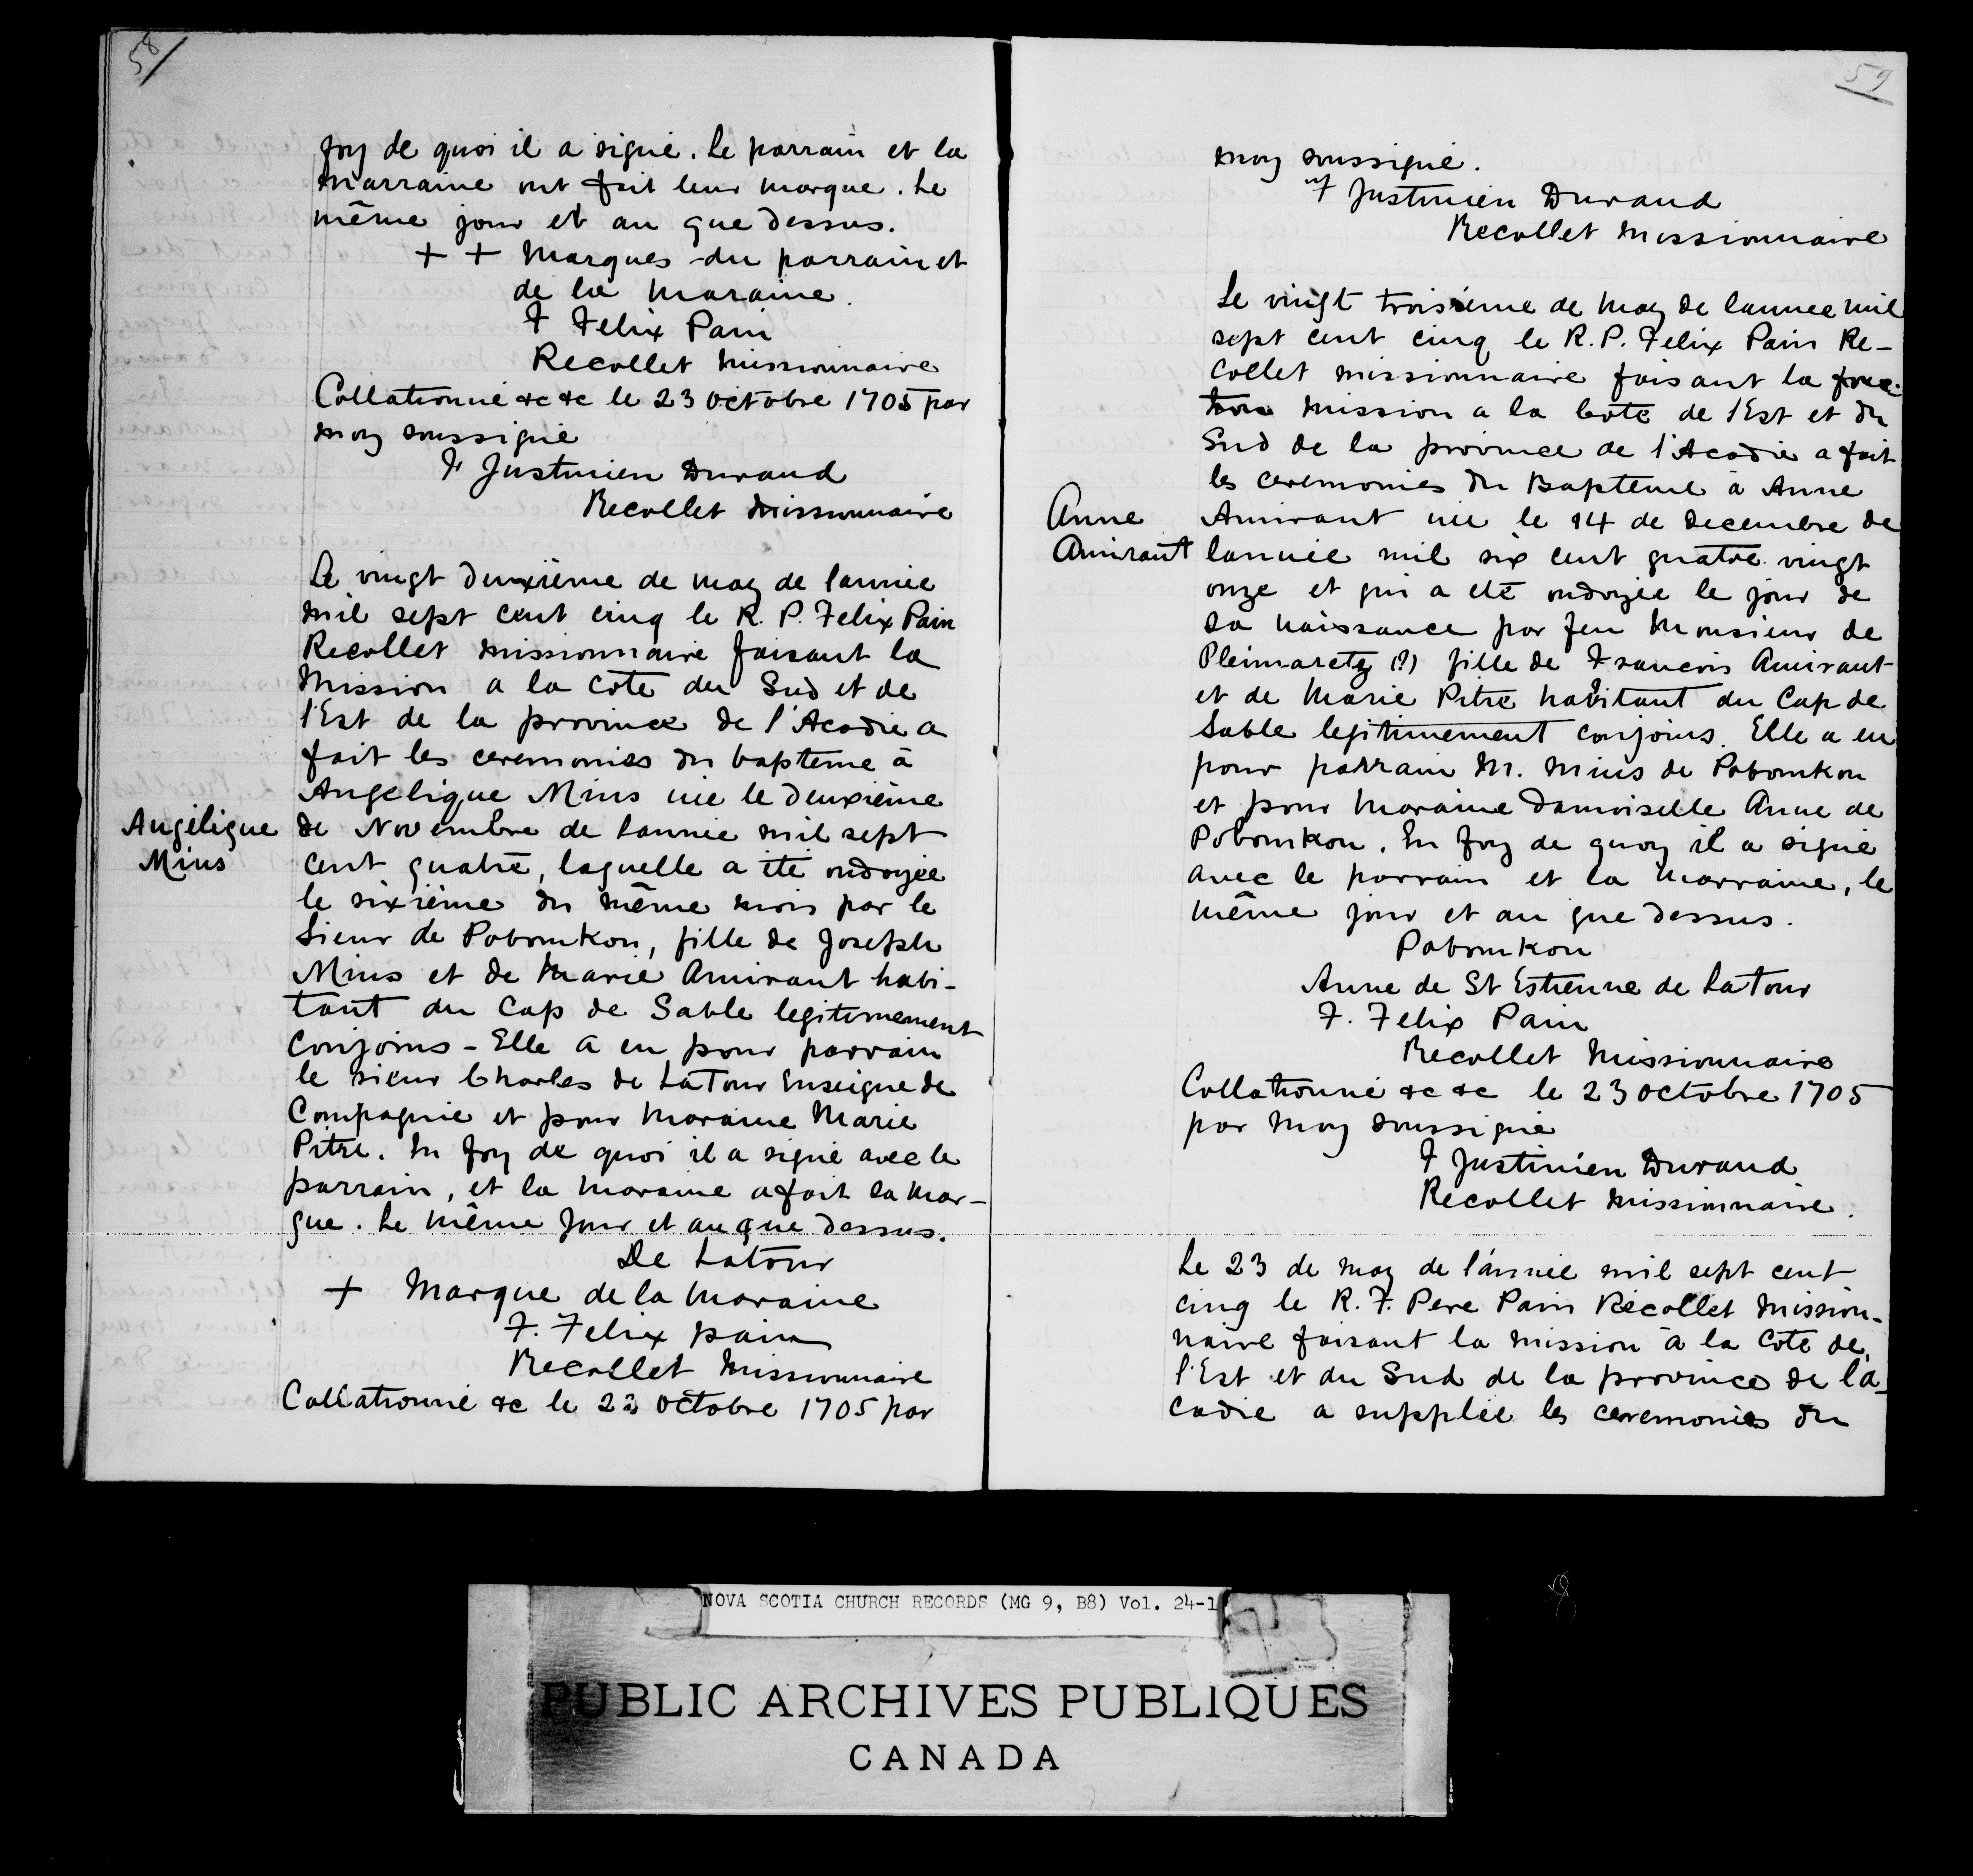 58/
foy de quoi il a signé. Le parrain et la
marraine ont fait leur marque. Le
même jour et an que dessus.
+ + Marques du parrain et
de la maraine.
F Felix Pain
Recollet Missionnaire
Collationné &c &c le 23 octobre 1705 par
moy soussigné
F Justinien Durand
Recollet Missionnaire
Le vingt deuxième de may de l'année
mil sept cent cinq le R. P. Felix Pain
Recollet missionnaire faisant la
Mission a la cote du Sud et de
l'Est de la province de l'Acadie a
fait les ceremonies du bapteme à
Angelique Mius née le deuxième
Angélique
Mius
de Novembre de lannée mil sept
cent quatre, laquelle a été ondoyée
le sixième du même mois par le
Sieur de Pobomkon, fille de Joseph
Mius et de Marie Amirant habi-
tant du Cap de Sable legitimement
conjoins - Elle a eu pour parrain
le sieur Charles de LaTour Enseigne de
Compagnie et pour maraine Marie
Pitre. En foy de quoi il a signé avec le
parrain, et la maraine a fait sa mar-
que. Le même jour et an que dessus.
De Latour
+ Marque de la Maraine
F. Felix pain
Recollet Missionnaire
Collationné &c le 23 octobre 1705 par
59
moy soussigné.
F Justinien Durand
Recollet Missionnaire
Le vingt troisième de may de lannee mil
sept cent cinq le R. P. Felix Pain Re-
collet missionnaire faisant la fonc-
tion mission a la Cote de l'Est et du
Sud de la province de l'Acadie a fait
les ceremonies du Bapteme à Anne
Anne
Amirant
Amirant née le 14 de decembre de
lannée mil six cent quatre vingt
onze et qui a eté ondoyée le jour de
sa naissance par feu Monsieur de
Pleimaretz (?) fille de Francois Amirant
et de Marie Pitre habitant du Cap de
Sable legitimement conjoins. Elle a eu
pour parrain M. Mius de Pobomkon
et pour Maraine Damoiselle Anne de
Pobomkon. En foy de quoy il a signé
avec le parrain et la Marraine, le
même jour et an que dessus.
Pobomkon
Anne de St Estienne de LaTour
F. Felix Pain
Recollet Missionnaire
Collationné &c &c le 23 octobre 1705
par Moy soussigné
F Justinien Durand
Recollet Missionnaire.
Le 23 de may de l'année mil sept cent
cinq le R. F. Pere Pain Recollet Mission-
naire faisant la mission à la Cote de
l'Est et du Sud de la province de l'a-
cadie a supplée les ceremonies du
NOVA SCOTIA CHURCH RECORDS (MG 9, B8) Vol. 24-1
PUBLIC ARCHIVES PUBLIQUES
CANADA